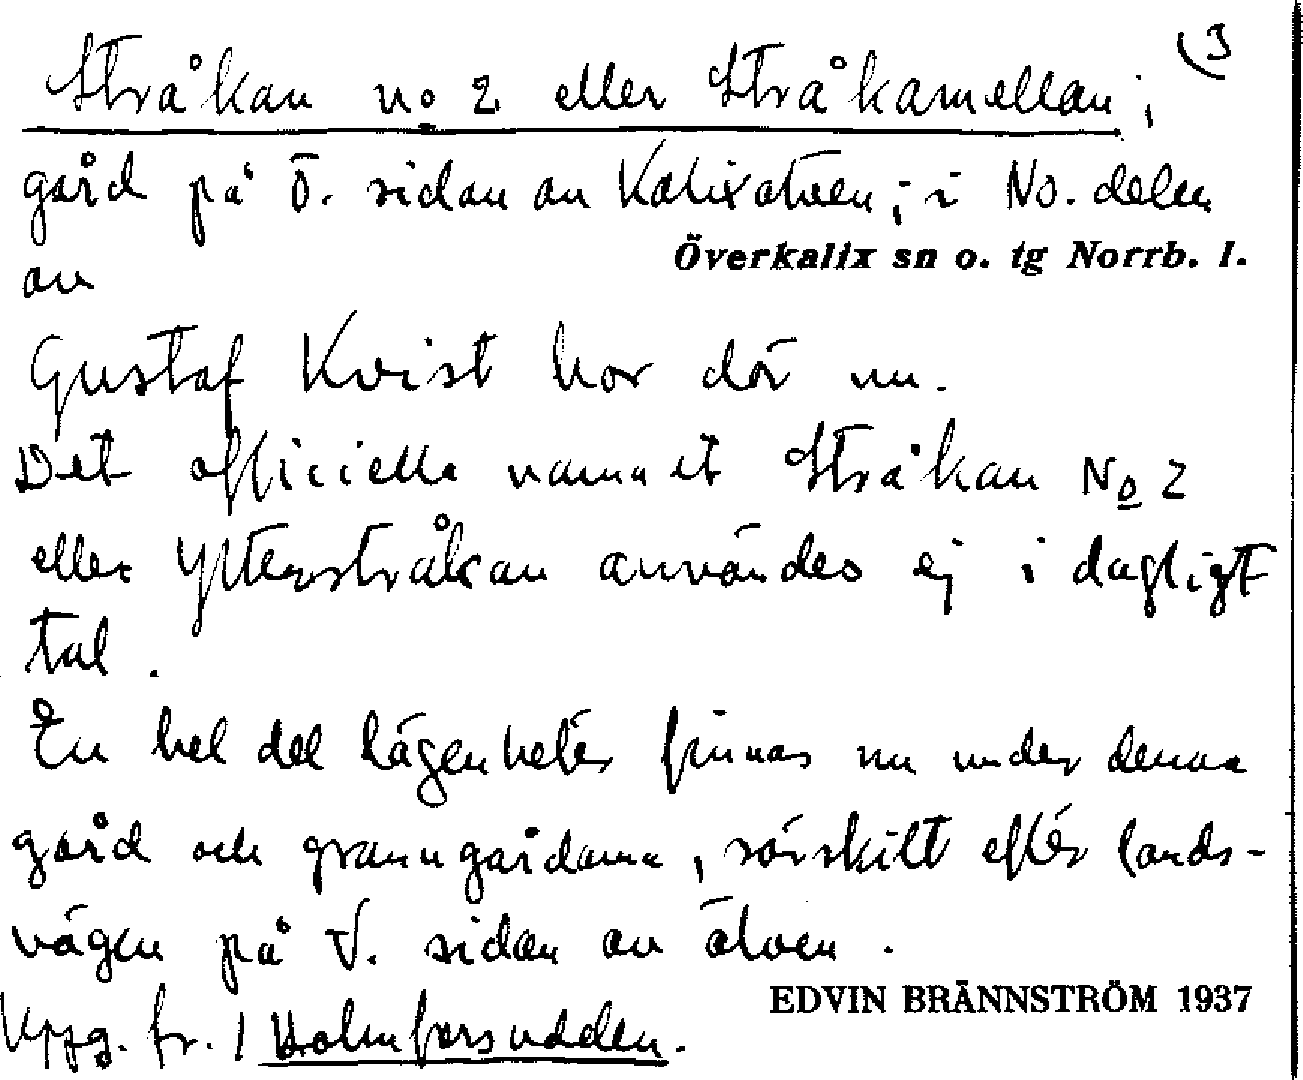 3
Stråkan no 2 eller Stråkamellan,
gård på Ö. sidan av Kalixälven, i No. delen
Överkalix sn o. tg Norrb. l.
av
Gustaf Kvist bor där nu.
Det officiella namnet Stråkan No 2
eller Ytterstråkan användes ej i dagligt
tal.
En hel del lägenheter finnas nu under denna
gård och granngårdarna, särskilt efter lands-
vägen på V. sidan av älven.
EDVIN BRÄNNSTRÖM 1937
Uppg. fr. 1 Holmforsudden.